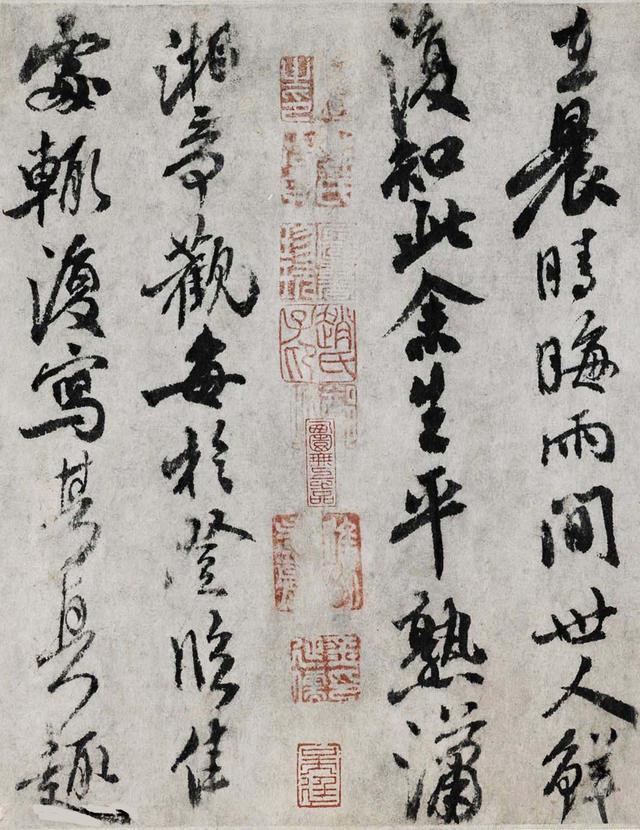 在晨晴晦雨間世人鮮
復知此余生平熟瀟
吳廷
湘奇觀每於登臨佳
處輒復寫其真趣